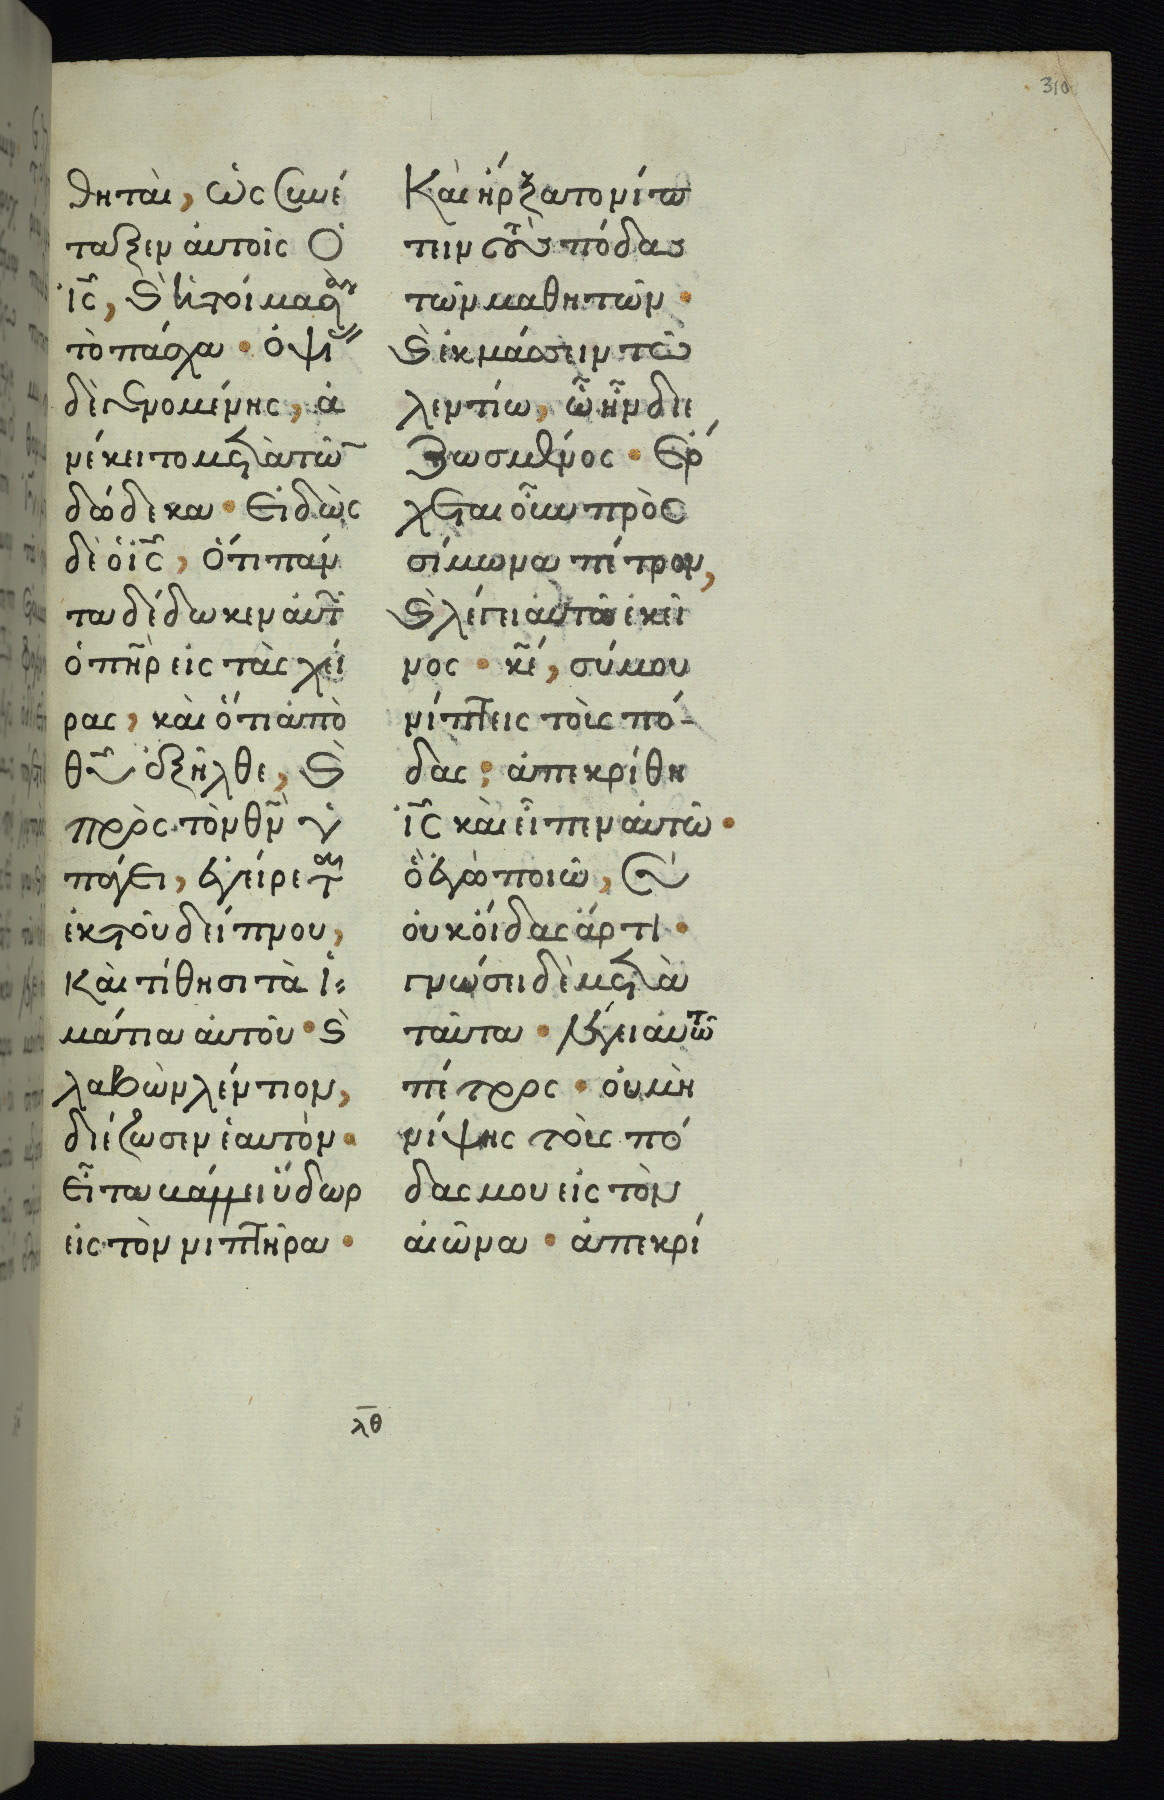 310
θηταὶ, ὡς συνέ
ταξεν αὐτοῖς Ὁ
ἰς̅, κ̀ ἡτοίμασαν
τὸ πάσχα · ὀψί
δὲ γενομένης, ἀ
νέκειτο μετὰ τῶ
δώδεκα · Εἰδὼς
δὲ ὁ ἰς̅, Ὅτι πάν
τα δέδωκεν αὐτ
ὁ πη̅ρ εἰς τὰς χεί
ρας, καὶ ὅτι ἀπὸ
θυ̅ ἐξῆλθε, κ̀
πρὸς τὸν θν̅ ὑ
πάγει, ἐγείρεται
ἐκ τοῦ δείπνου,
Καὶ τίθησι τὰ ἱ
μάτια αὐτοῦ · κ̀
λαβὼν λέντιον,
διέζωσεν ἑαυτόν ·
Εἶτα βάλλει ὕδωρ
εἰς τὸν νιπτῆρα ·
Καὶ ἤρξατο νίπ
τειν τοὺς πόδας
τῶν μαθητῶν ·
κ̀ ἐκμάσσειν τῶ
λεντίω, ὧ ἦν διε
ζωσμένος · Ἔρ
χεται οὖν πρὸς
σίμωνα πέτρον,
κ̀ λέγει αὐτῶ ἐκεῖ
νος · κε̅, σύ μου
νίπτεις τοὺς πό-
δας; ἀπεκρίθη
ἰς̅ καὶ εἶπεν αὐτῶ ·
ὃ ἐγὼ ποιῶ, σὺ
οὐκ οἶδας ἄρτι ·
γνώσει δὲ μετὰ
ταῦτα · λέγει αὐτῶ
πέτρος · οὐ μὴ
νίψης τοὺς πό
δας μου εἰς τὸν
αἰῶνα · ἀπεκρί
λθ̅